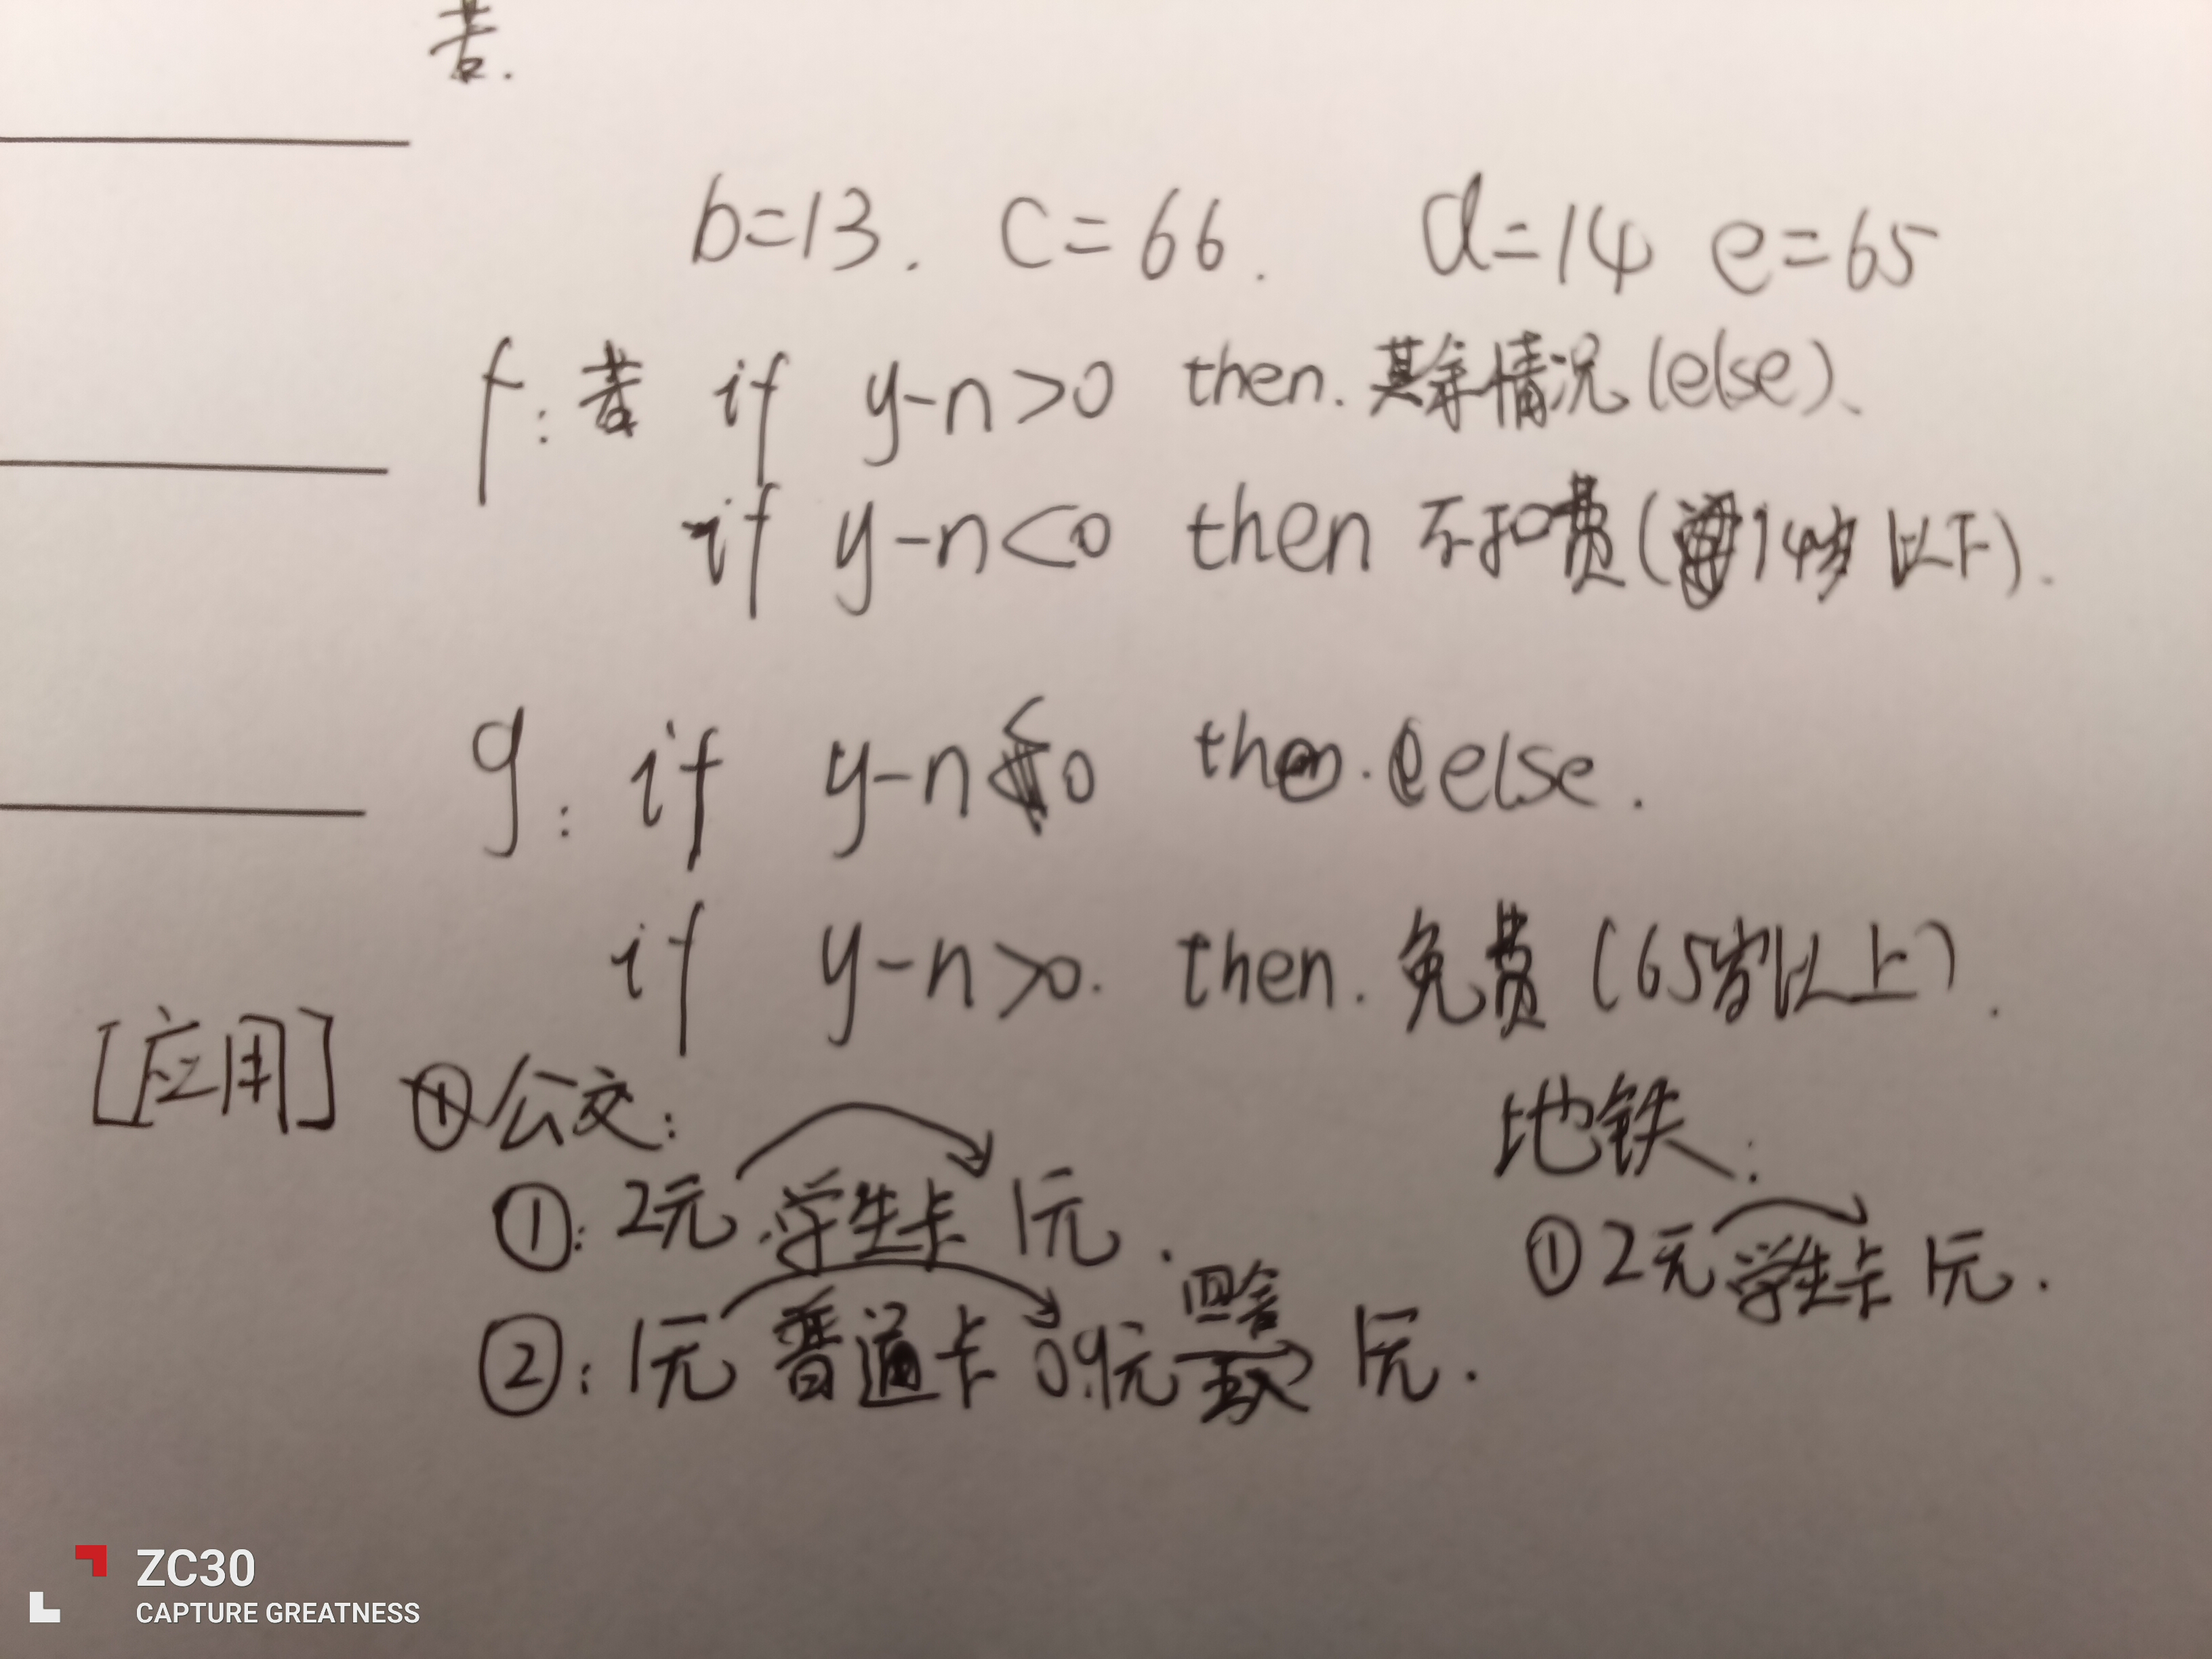 若.
b=13. c=66. d=14 e=65
f: 若 if y-n>0 then. 其余情况(else)、
if y-n<0 then 不扣费(14岁以下).
g: if y-n<0 then. else.
if y-n>0. then. 免费(65岁以上).
[应用] 公交: 地铁:
①: 2元 学生卡 1元. ① 2元 学生卡 1元.
②: 1元 普通卡 0.9元 四舍五入 1元.
ZC30
CAPTURE GREATNESS